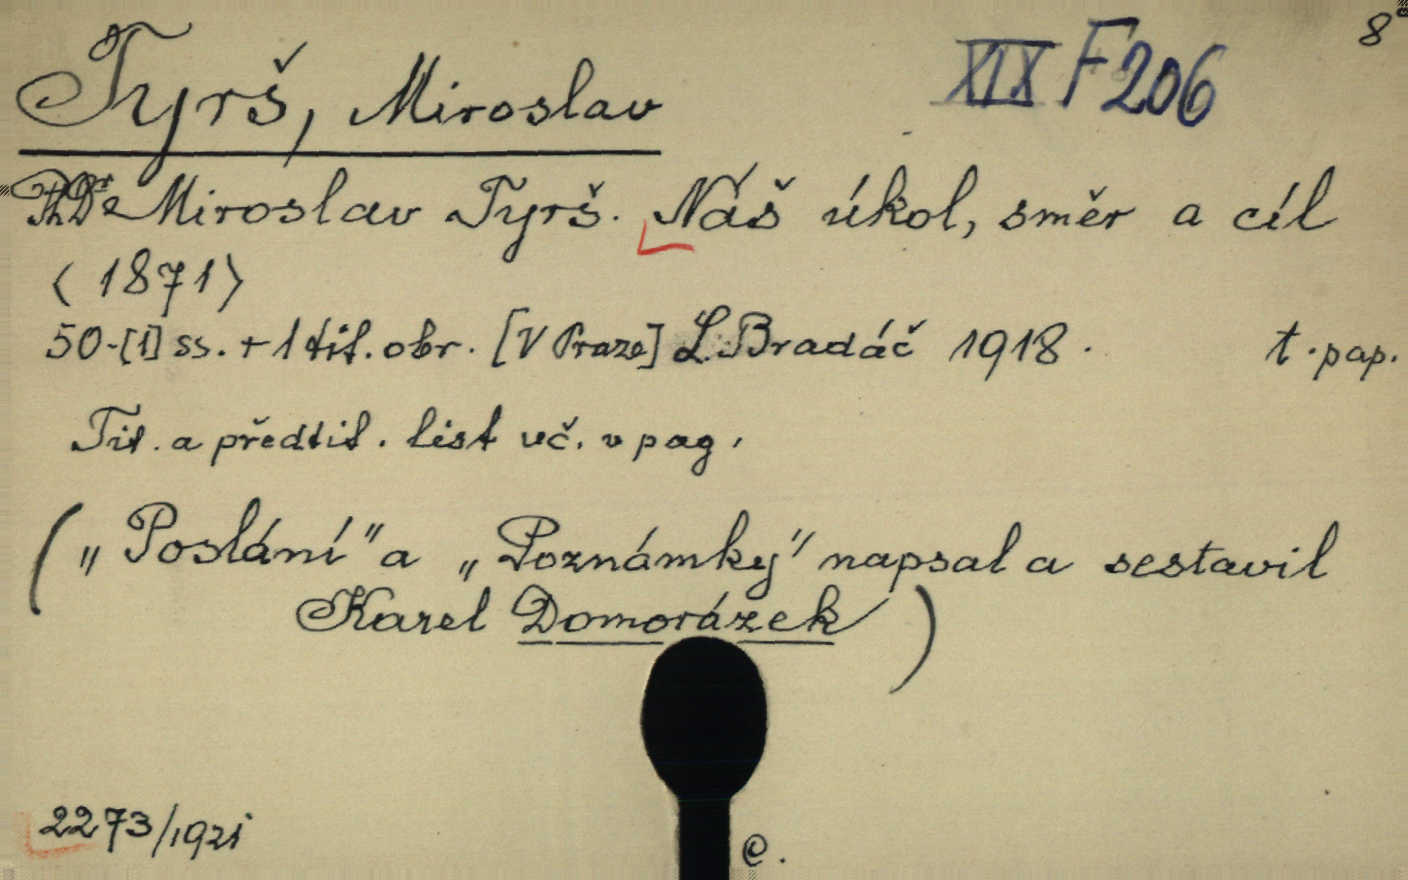 8°
XIX F 206
Tyrš, Miroslav
PhDr Miroslav Tyrš. Náš úkol, směr a cíl
⟨1871⟩
50-[1] ss. + 1 tit. obr. [V Praze] L. Bradáč 1918. t. pap.
Tit. a předtit. list vč. v pag.
(„Poslání" a „Poznámky" napsal a sestavil
Karel Domorázek)
2273/1921
C.